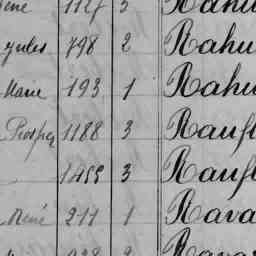 1127 3 Rahu
Jules 798 2 Rahu
Marie 193 1 Rahu
Prosper 1188 3 Raufl
1455 3 Raufl
René 211 1 Rava